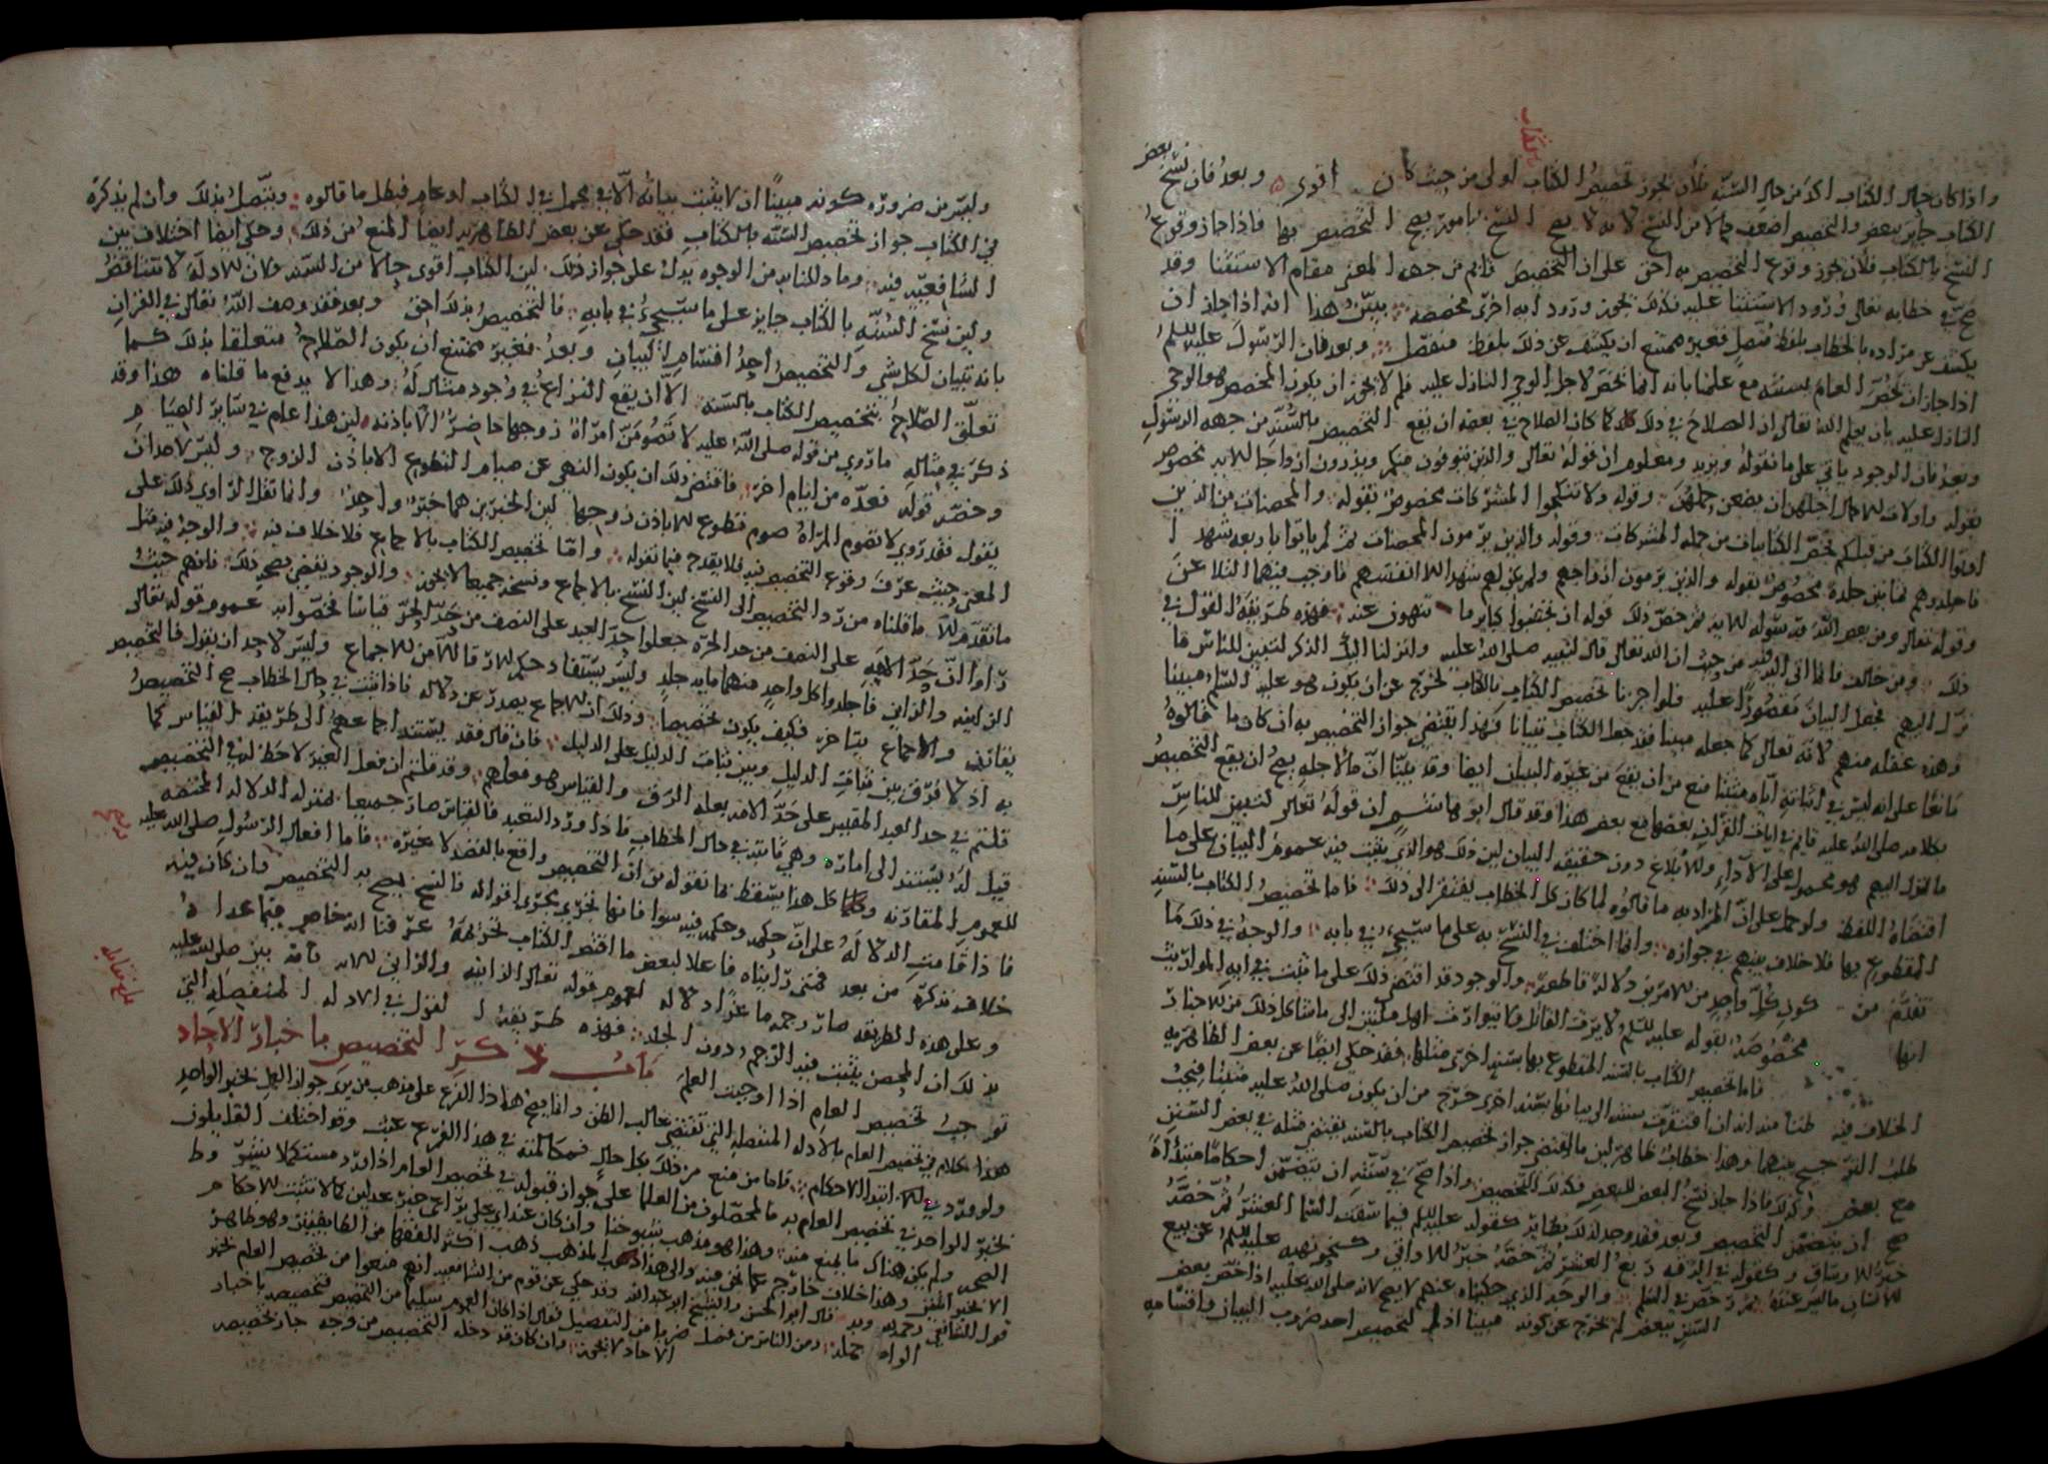 بالكتاب
واذا كان حال الكتاب اكد من حال السنه فلان يجوز تخصيص الكتاب اولى من حيث كان اقوى وبعد فان نسخ بعض
الكتاب جايز ببعض والتخصيص اضعف حالا من النسخ لانه لا يصح النسخ بامور يصح التخصيص بها فاذا جاز وقوع
النسخ بالكتاب فلان يجوز وقوع التخصيص به احق على ان التخصيص قايم من جهه المعنى مقام الاستثنا وقد
صح في خطابه تعالى ورود الاستثنا عليه فكذلك يجوز ورود ايه اخرى مخصصه يبين هذا انه اذا جاز ان
يكشف عن مراده بالخطاب بلفظ متصل فغير ممتنع ان يكشف عن ذلك بلفظ منفصل وبعد فان الرسول عليه السلم
اذا جاز ان يخص العام بسنته مع علمنا بانه انما يخص لاجل الوحي النازل عليه فلم لا يجوز ان يكون المخصص هو الوحي
النازل عليه بان يعلم الله تعالى ان الصلاح في ذلك كله كما كان الصلاح في بعضه ان يقع التخصيص بالسنه من جهه الرسول
وبعد فان الوجود ياتي على ما نقوله ويزيد ومعلوم ان قوله تعالى والذين يتوفون منكم ويذرون ازواجا الايه مخصوص
بقوله واولات الاحمال اجلهن ان يضعن حملهن وقوله ولا تنكحوا المشركات مخصوص بقوله والمحصنات من الذين
اوتوا الكتاب من قبلكم يخص الكتابيات من جمله المشركات وقوله والذين يرمون المحصنات ثم لم ياتوا باربعه شهدا
فاجلدوهم ثمانين جلده مخصوص بقوله والذين يرمون ازواجهم ولم يكن لهم شهدا الا انفسهم فاوجب فيهما التلاعن
وقوله تعالى ومن يعص الله ورسوله الايه ثم خص ذلك قوله ان تجتنبوا كباير ما تنهون عنه فهذه طريقه القول في
ذلك ومن خالف فانما اتى من حيث ان الله تعالى قال لنبيه صلى الله عليه وانزلنا اليك الذكر لتبين للناس ما
نزل اليهم فجعل البيان مقصورا عليه فلو اجزنا تخصيص الكتاب بالكتاب لخرج عن ان يكون هو عليه السلم مبينا
وهذه غفله منهم لانه تعالى كما جعله مبينا فقد جعل الكتاب تبيانا فهذا يقتضي جواز التخصيص به ان كان ما قالوه
مانعا على انه ليس في اثباته اياه مثبتا منع من ان يقع من غيره البيان ايضا وقد بينا ان ما لاجله يصح ان يقع التخصيص
بكلامه صلى الله عليه قايم في ايات القران بعضها مع بعض هذا وقد قال ابو هاشم ان قوله تعالى لتبين للناس
ما نزل اليهم هو محمول على الاداء والابلاغ دون حقيقه البيان لان ذلك هو الذي يثبت فيه عموم البيان على ما
اقتضاه اللفظ ولو حمل على ان المراد به ما قالوه لما كان كل الخطاب يفتقر الى ذلك فاما تخصيص الكتاب بالسنه
المقطوع بها فلا خلاف بينهم في جوازه وانما اختلف في النسخ به على ما سيجيء في بابه والوجه في ذلك ما
تقدم من كون كل واحد من الامرين دلاله قاطعه والوجود قد اقتضى ذلك على ما ثبت في ايه المواريث
انها مخصوصه بقوله عليه السلم لا يرث القاتل ولا يتوارث اهل ملتين الى ما شاكل ذلك من الاخبار
فاما تخصيص الكتاب بالسنه المقطوع بها بسنه اخرى مثلها فقد حكي ايضا عن بعض الظاهريه
الخلاف فيه ظنا منه انه ان افتقرت سنته الى بيانها بسنه اخرى خرج من ان يكون صلى الله عليه مبينا فيجب
طلب الترجيح بينهما وهذا خطا ظاهر لان ما اقتضى جواز تخصيص الكتاب بالسنه يقتضي مثله في بعض السنن
مع بعض وكذلك فاذا جاز نسخ البعض للبعض فكذلك التخصيص واذا صح في سنته ان يتضمن احكاما مبتداه
صح ان يتضمن التخصيص وبعد فقد وجد لذلك نظاير كقوله عليه السلم فيما سقت السما العشر ثم خصه
خبر الاوساق وكقوله في الرقه ربع العشر ثم خصه خبر الاواقي وكنحو نهيه عليه السلم عن بيع
الانسان ما ليس عنده ثم رخص في السلم والوجه الذي حكيناه عنهم لا يصح لانه صلى الله عليه اذا خص بعض
السنن ببعض لم يخرج عن كونه مبينا اذ التخصيص احد ضروب البيان واقسامه
وليس من ضروره كونه مبينا ان لا يثبت بيانه الا في مجمل في الكتاب او عام فبطل ما قالوه ويتصل بذلك وان لم يذكره
في الكتاب جواز تخصيص السنه بالكتاب فقد حكي عن بعض الظاهريه ايضا المنع من ذلك وحكى ايضا اختلاف بين
الشافعيه فيه وما دللنا به من الوجوه يدل على جواز ذلك لان الكتاب اقوى حالا من السنه ولان الادله لا تتناقض
ولان نسخ السنه بالكتاب جايز على ما سيجيء في بابه فالتخصيص بذلك احق وبعد فقد وصف الله تعالى القران
بانه تبيان لكل شي والتخصيص احد اقسام البيان وبعد فغير ممتنع ان يكون الصلاح متعلقا بذلك كما
تعلق الصلاح بتخصيص الكتاب بالسنه الا ان يقع النزاع في وجود مثال له وهذا لا يدفع ما قلناه هذا وقد
ذكر في مثاله ما روي من قوله صلى الله عليه لا تصومن امراه زوجها حاضر الا باذنه لان هذا عام في ساير الصيام
وخصه قوله فعده من ايام اخر فاقتضى ذلك ان يكون النهي عن صيام التطوع الا باذن الزوج وليس لاحد ان
يقول فقد روي لا تصوم المراه صوم تطوع الا باذن زوجها لان الخبرين هما خبر واحد وانما نقل الراوي ذلك على
المعنى حيث عرف وقوع التخصيص فيه فلا يقدح فيما نقوله واما تخصيص الكتاب بالاجماع فلا خلاف فيه والوجه فيه مثل
ما تقدم الا ما قلناه من رد التخصيص الى النسخ لان النسخ بالاجماع ونسخه جميعا لا يجوز والوجود يقضي بصحه ذلك فانهم حيث
راوا ان حد الامه على النصف من حد الحره جعلوا حد العبد على النصف من حد الحر قياسا فخصوا به عموم قوله تعالى
الزانيه والزاني فاجلدوا كل واحد منهما مايه جلده وليس يستفاد حكم الارقا الا من الاجماع وليس لاحد ان يقول فالتخصيص
يقارن والاجماع يتاخر فكيف يكون تخصيصا وذلك ان الاجماع يصدر عن دلاله فاذا ثبت في حال الخطاب صح التخصيص
به اذ لا فرق بين ثبات الدليل وبين ثبات الدليل على الدليل فان قال فقد يستند اجماعهم الى طريقه القياس كما
قلتم في حد العبد المقيس على حد الامه بعله الرق والقياس هو فعلهم وقد قلتم ان فعل الغير لا حظ له في التخصيص
قيل له يستند الى اماره وهي ثابته في حال الخطاب فاذا ورد التعبد بالقياس صار جميعا بمنزله الدلاله المختصه
للعموم المقارنه وكل هذا يسقط بما نقوله من ان التخصيص واقع بالقصد لا بغيره فاما افعال الرسول صلى الله عليه
فاذا قامت الدلاله على ان حكمه وحكمنا فيه سوا فانها تجري مجرى اقواله فالنسخ يصح به التخصيص وان كان فيه
خلاف نذكره من بعد فمتى رايناه فاعلا لبعض ما اقتضى الكتاب تحريمه عرفنا انه خاص فيما عداه
وعلى هذه الطريقه صار رجمه ماعزا دلاله لعموم قوله تعالى الزانيه والزاني الايه فانه بين صلى الله عليه
بذلك ان المحصن يثبت فيه الرجم دون الجلد فهذه طريقه القول في الادله المنفصله التي
توجب تخصيص العام اذا اوجبت العلم باب ذكر التخصيص باخبار الاحاد
هذا كلام في تخصيص العام بالادله المنفصله التي تقتضي غالب الظن وانما يصح هذا الفرع على مذهب من يرى جواز العمل بخبر الواحد
ولو ورد في ابتدا الاحكام فاما من منع من ذلك بكل حال فمكالمته في هذا الفرع عبث وقد اختلف القايلون
بخبر الواحد في تخصيص العام به فالمحصلون من العلما على جواز قبوله في تخصيص العام اذا ورد مستكملا شروط
الصحه ولم يكن هناك ما يمنع منه وهذا هو مذهب شيوخنا وان كان عند ابي علي يراعى خبر عدلين كما لا تثبت الاحكام
الا بخبر اثنين وهذا خلاف خارج عما نحن فيه والى هذا المذهب ذهب اكثر الفقها من الطايفتين وهو ظاهر
قول الشافعي رحمه الله وبه قال ابو الحسن والشيخ ابو عبد الله وقد حكي عن قوم من الشافعيه انهم منعوا من تخصيص العام بخبر
الواحد جمله ومن الناس من فصل ضربا من التفصيل فقال اذا كان العموم سليما من التخصيص فتخصيصه باخبار
الاحاد لا يجوز وان كان قد دخله التخصيص من وجه جاز تخصيصه